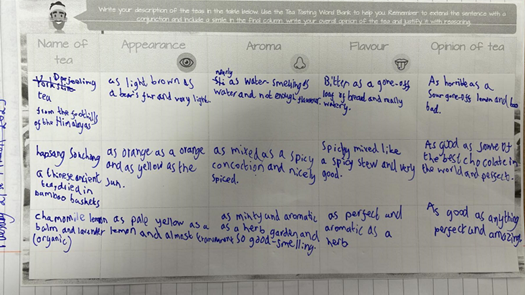 Write your description of the teas in the table below. Use the Tea Tasting Word Bank to help you. Remember to extend the sentence with a
conjunction and include a simile in the final column. Write your overall opinion of the tea and justify it with reasoning.
Name of tea
Appearance
Aroma
Flavour
Opinion of tea
Darjeeling
tea
from the foothills
of the Himalayas
as light brown as
a bear's fur and very light.
as water-smelling as
water and not enough
Bitter as a gone-off
loaf of bread and really
watery.
As horrible as a
sour gone-off lemon and too
bad.
lapsang Souchong
a Chinese ancient
tea, dried in
bamboo baskets
as orange as a orange
and as yellow as the
sun.
as mixed as a spicy
concoction and nicely
spiced.
Spicy mixed like
a spicy stew and very
good.
As good as some of
the best chocolate in
the world and perfect.
chamomile lemon
balm and lavander
(organic)
as pale yellow as a
lemon and almost
as minty and aromatic
as a herb garden and
so good-smelling.
as perfect and
aromatic as a
herb
As good as anything
perfect and amazing.